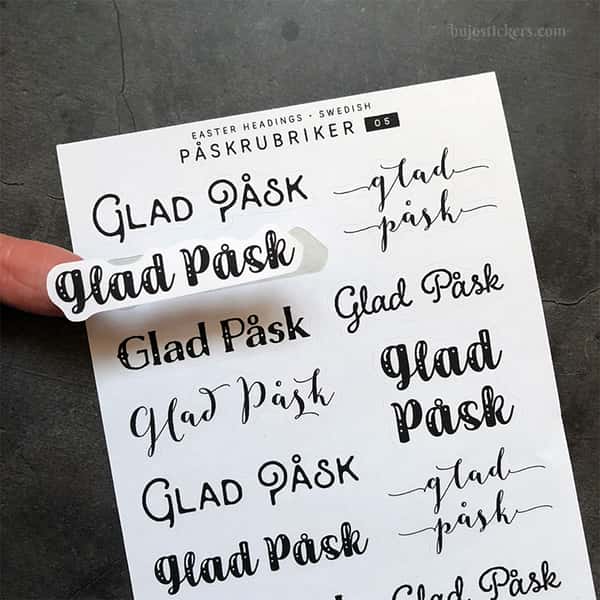 bujostickers.com
EASTER HEADINGS • SWEDISH
PÅSKRUBRIKER 05
GLAD PÅSK
glad
påsk
Glad Påsk
Glad Påsk
Glad Påsk
Glad
Påsk
Glad Påsk
GLAD PÅSK
glad
påsk
Glad Påsk
Glad Påsk